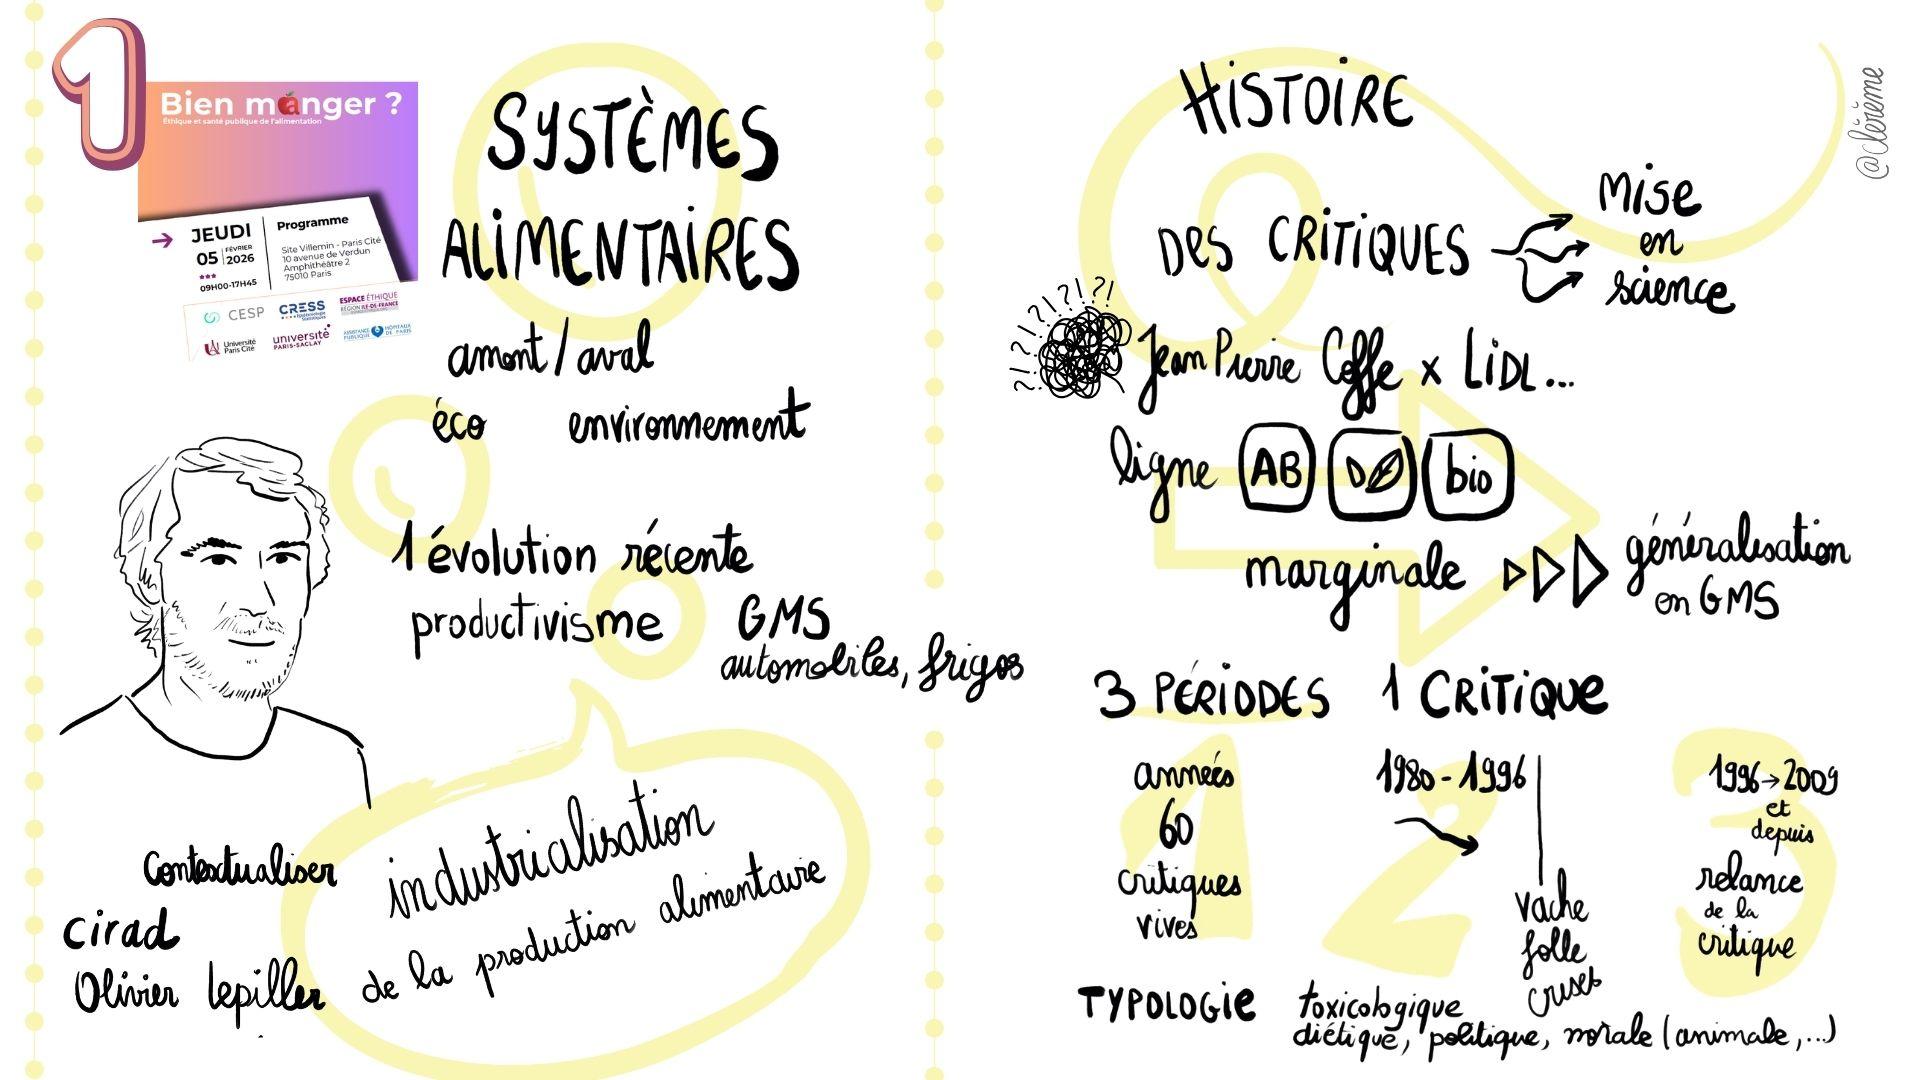 1
Bien manger ?
Éthique et santé publique de l'alimentation
JEUDI
05 FÉVRIER 2026
09H00-17H45
Programme
Site Villemin - Paris Cité
10 avenue de Verdun
Amphithéâtre 2
75010 Paris
CESP
CRESS
ESPACE ÉTHIQUE
RÉGION ILE-DE-FRANCE
Université
Paris Cité
université
PARIS-SACLAY
ASSISTANCE
PUBLIQUE
HÔPITAUX
DE PARIS
SYSTÈMES
ALIMENTAIRES
amont / aval
éco environnement
1 évolution récente
productivisme GMS
automobiles, frigos
industrialisation
de la production alimentaire
Contextualiser
cirad
Olivier Lepiller
HISTOIRE
DES CRITIQUES
Mise
en
science
?!?!?!?!?!
Jean Pierre Coffe x LIDL...
ligne AB bio
marginale
généralisation
en GMS
3 PÉRIODES 1 CRITIQUE
1
années
60
critiques
vives
2
1980 - 1996
vache
folle
3
1996 → 2009
et
depuis
relance
de la
critique
TYPOLOGIE toxicologique
diététique, politique, morale (animale,...)
@clérème